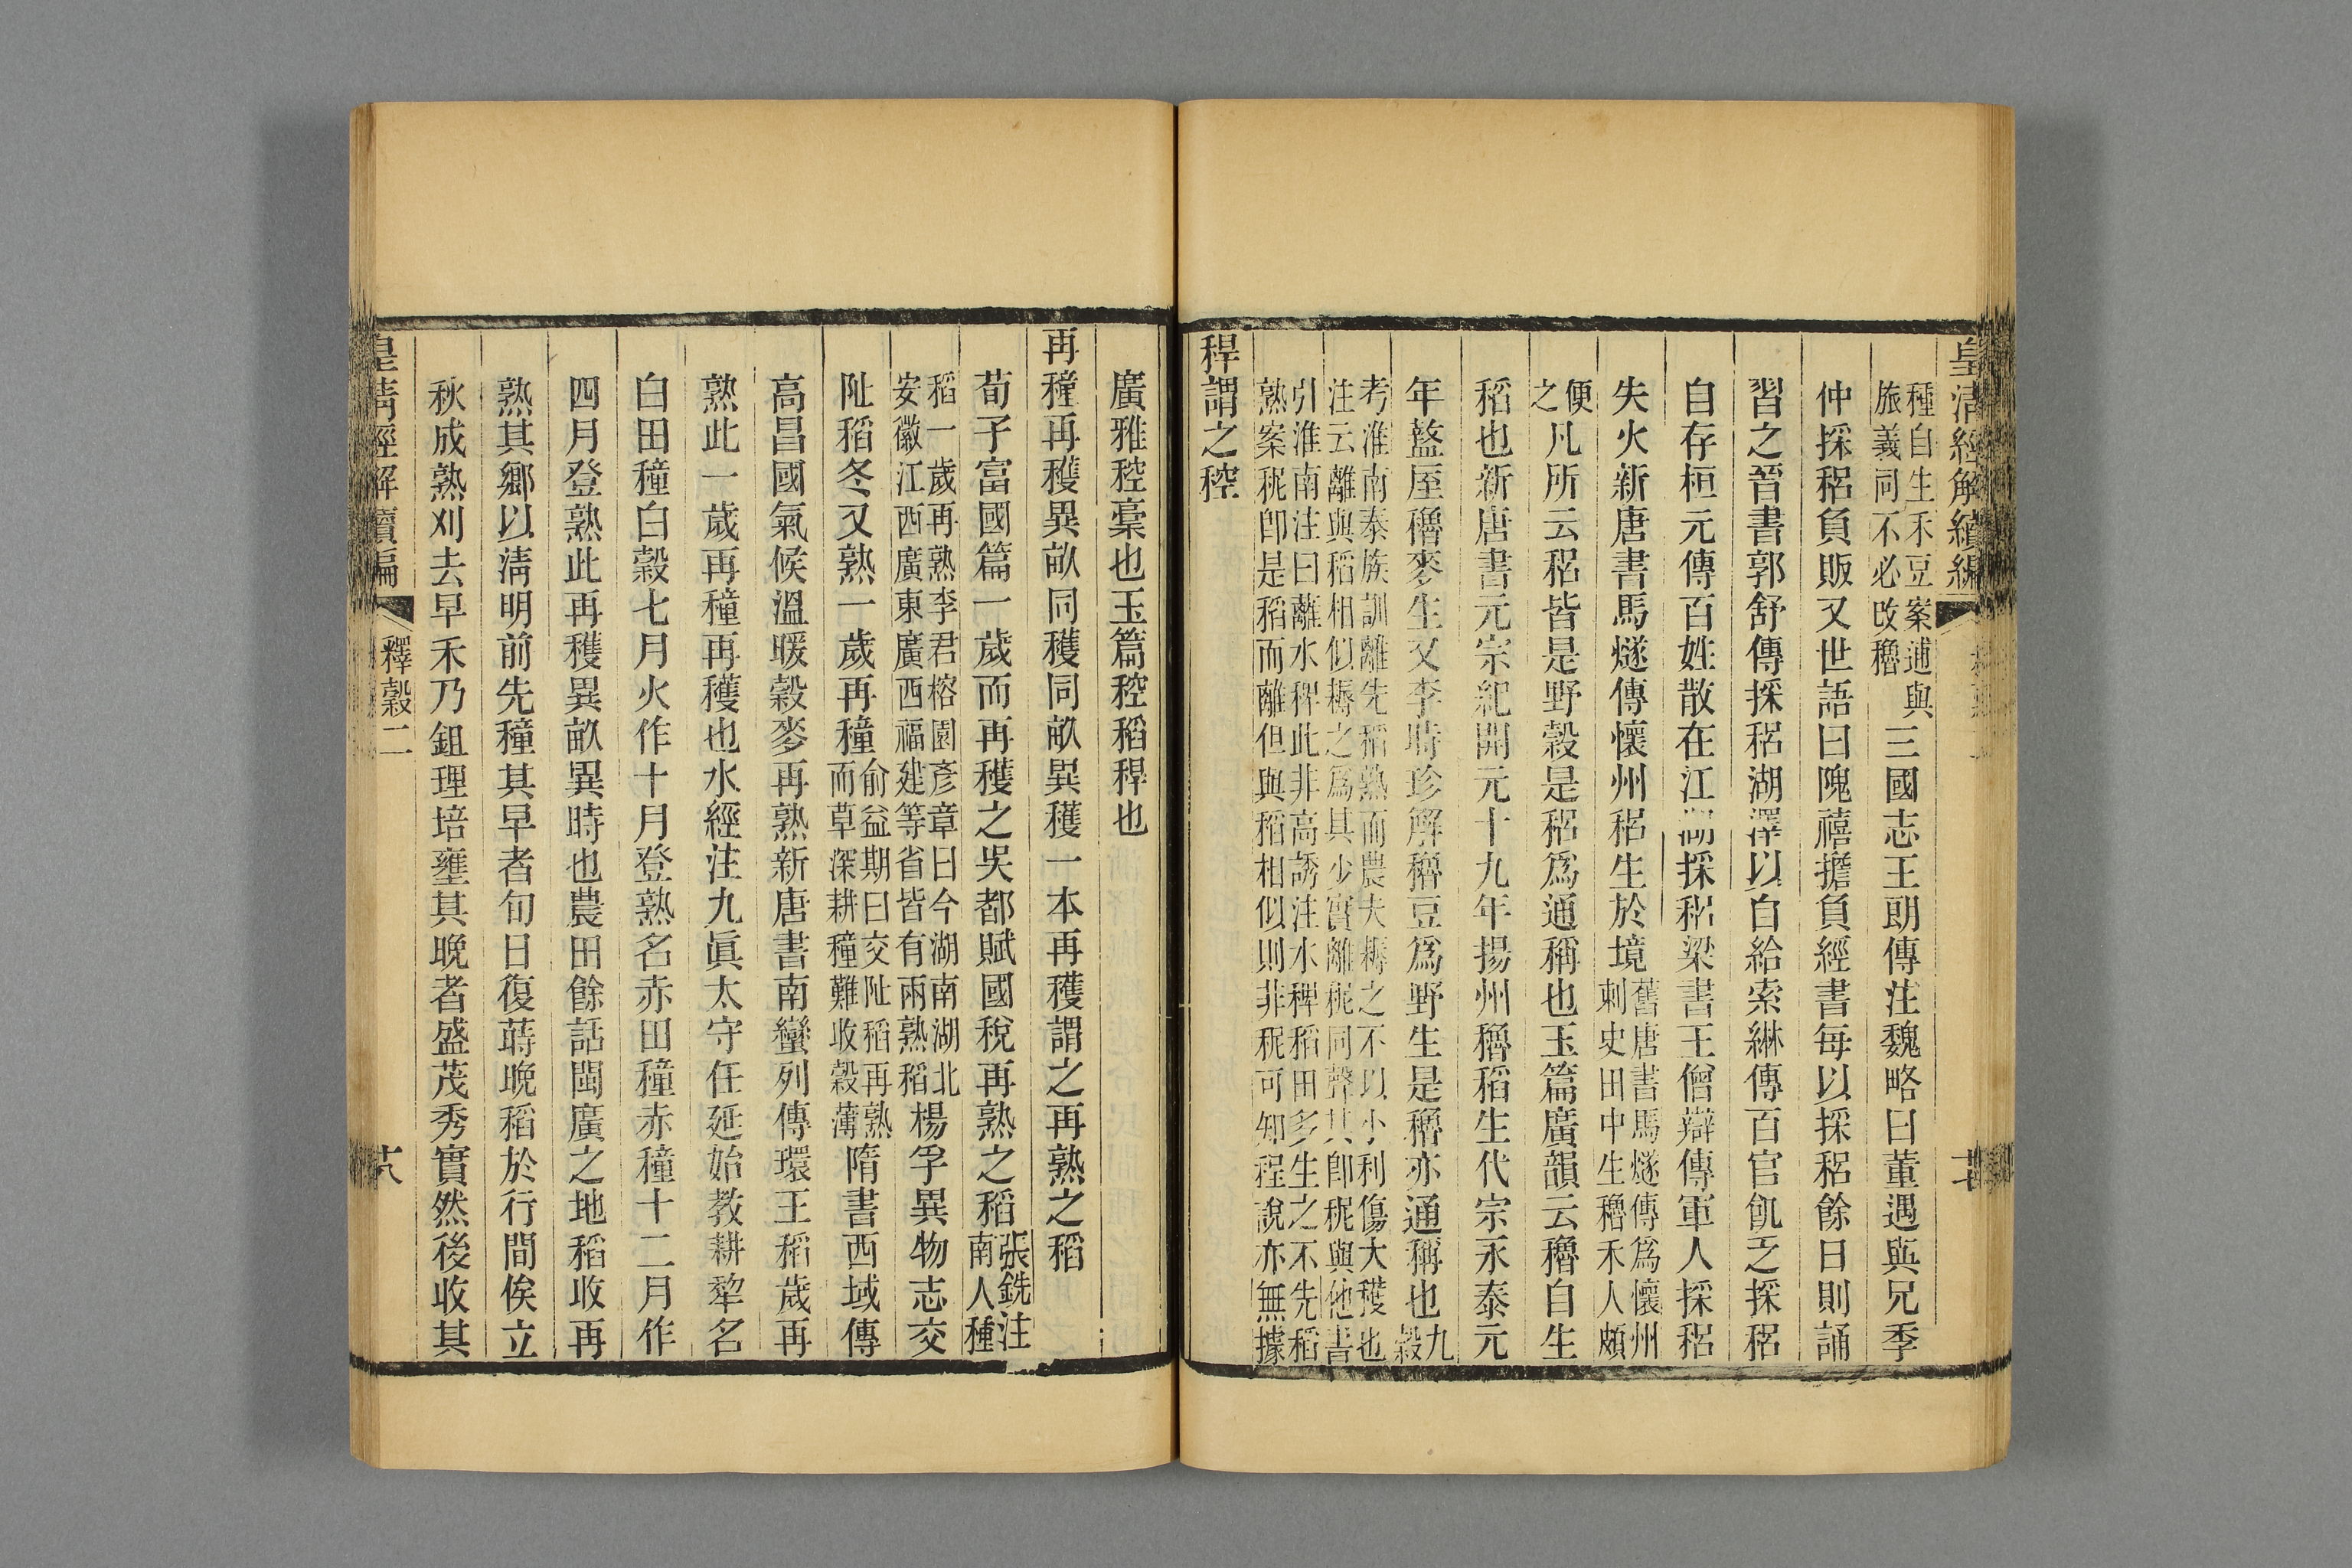 皇清經解續編
種自生禾豆案逋與
旅義同不必改穭
三國志王朗傳注魏略曰董遇與兄季
仲採稆負販又世語曰隗禧擔負經書每以採稆餘日則誦
習之晉書郭舒傳採稆湖澤以自給索綝傳百官飢乏採稆
自存桓元傳百姓散在江湖採稆梁書王僧辯傳軍人採稆
失火新唐書馬燧傳懷州稆生於境
舊唐書馬燧傳爲懷州
刺史田中生穭禾人頗
便
之
凡所云稆皆是野穀是稆爲通稱也玉篇廣韻云穭自生
稻也新唐書元宗紀開元十九年揚州穭稻生代宗永泰元
年盩厔穭麥生又李時珍解穭豆爲野生是穭亦通稱也
九
穀
考淮南泰族訓離先稻熟而農夫耨之不以小利傷大穫也
注云離與稻相似耨之爲其少實離秜同聲其卽秜與他書
引淮南注曰離水稗此非高誘注水稗稻田多生之不先稻
熟案秜卽是稻而離但與稻相似則非秜可知程說亦無據
稈謂之稑
廣雅稑稾也玉篇稑稻稈也
再穜再穫異畝同穫同畝異穫一本再穫謂之再熟之稻
荀子富國篇一歲而再穫之吳都賦國稅再熟之稻
張銑注
南人種
稻一歲再熟李君榕園彥章曰今湖南湖北
安徽江西廣東廣西福建等省皆有兩熟稻
楊孚異物志交
阯稻冬又熟一歲再穜
俞益期曰交阯稻再熟
而草深耕穜難收穀薄
隋書西域傳
高昌國氣候溫暖穀麥再熟新唐書南蠻列傳環王稻歲再
熟此一歲再穜再穫也水經注九眞太守任延始教耕犂名
白田穜白穀七月火作十月登熟名赤田穜赤穜十二月作
四月登熟此再穫異畝異時也農田餘話閩廣之地稻收再
熟其鄉以清明前先穜其早者旬日復蒔晚稻於行間俟立
秋成熟刈去早禾乃鉏理培壅其晚者盛茂秀實然後收其
皇清經解續編
釋穀二